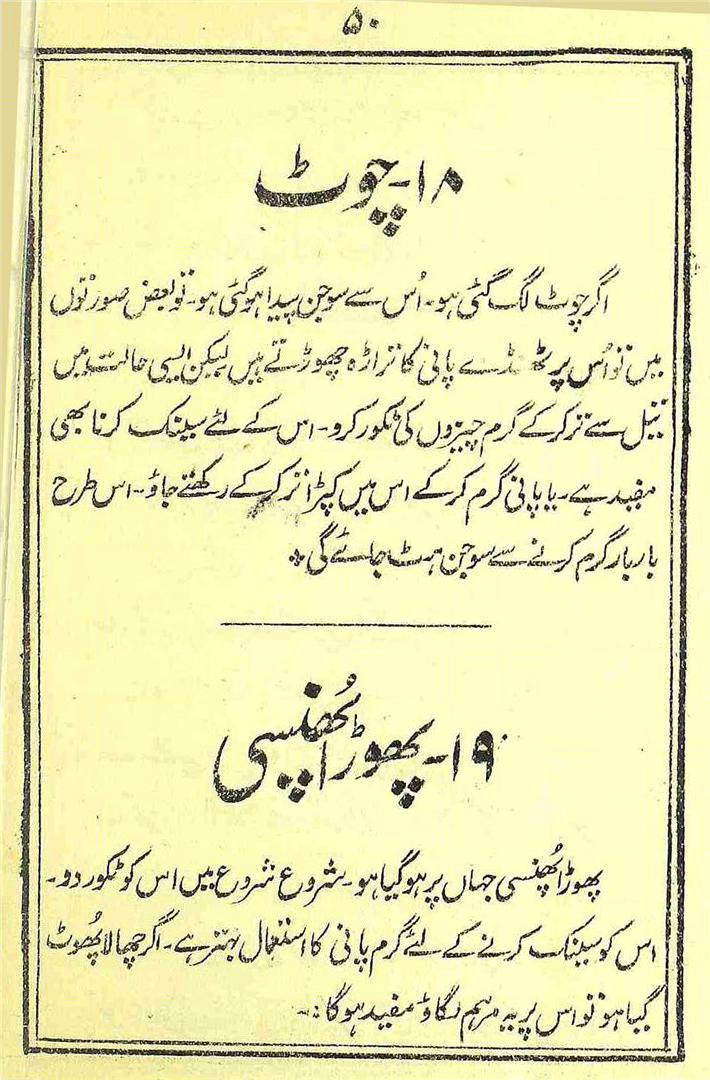 ۵۰
۱۸۔ چوٹ
اگر چوٹ لگ گئی ہو۔ اُس سے سوجن پیدا ہو گئی ہو۔ تو بعض صورتوں
میں تو اُس پر ٹھنڈے پانی کا تراڑہ چھوڑتے ہیں لیکن ایسی حالت میں
تیل سے تر کر کے گرم چیزوں کی ٹکور کرو۔ اس کے لئے سینک کرنا بھی
مفید ہے۔ یا پانی گرم کر کے اس میں کپڑا تر کر کے رکھتے جاؤ۔ اس طرح
بار بار گرم کرنے سے سوجن ہٹ جائے گی ۔
۱۹۔ پھوڑا پُھنسی
پھوڑا پُھنسی جہاں پر ہو گیا ہو۔ شروع شروع میں اس کو ٹکور دو۔
اس کو سینک کرنے کے لئے گرم پانی کا استعمال بہتر ہے۔ اگر چھالا پُھوٹ
گیا ہو تو اس پر یہ مرہم لگاؤ مفید ہوگا:۔